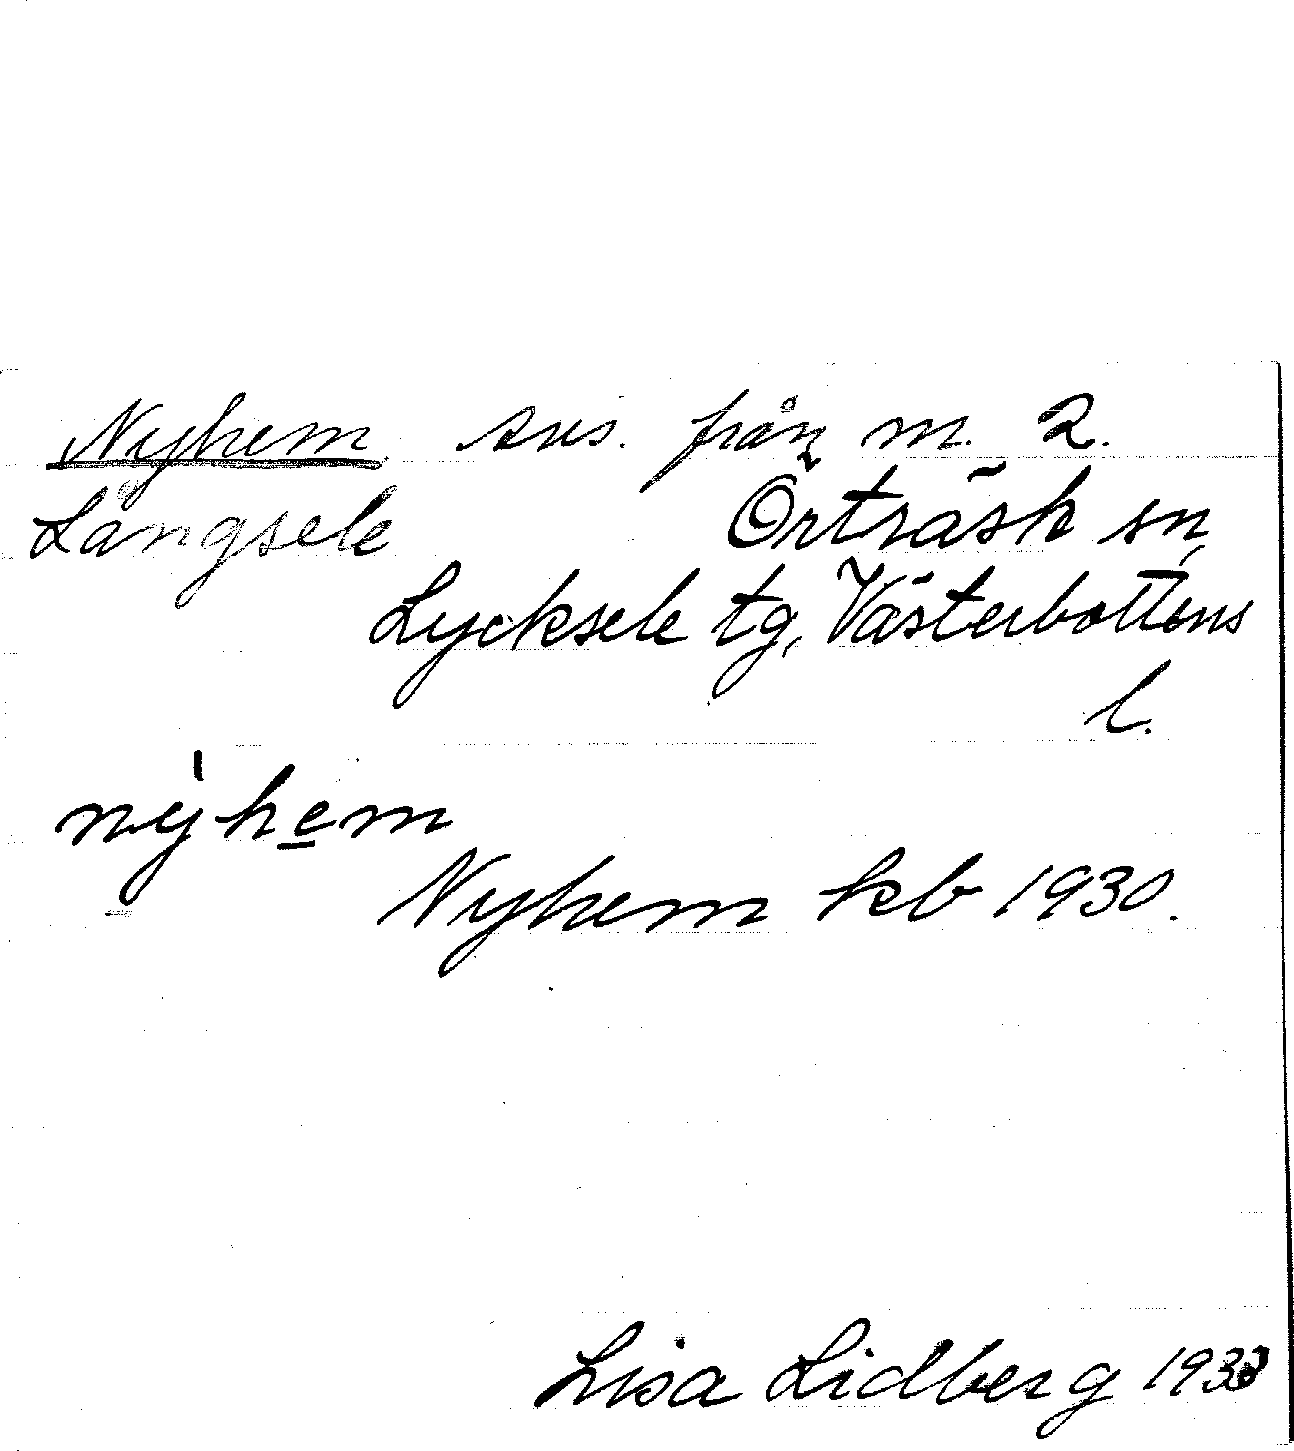 Nyhem avs. från m. 2.
Långsele Örträsk sn,
Lycksele tg, Västerbottens
l.
nyhem
Nyhem kb 1930.
Lisa Lidberg 1933